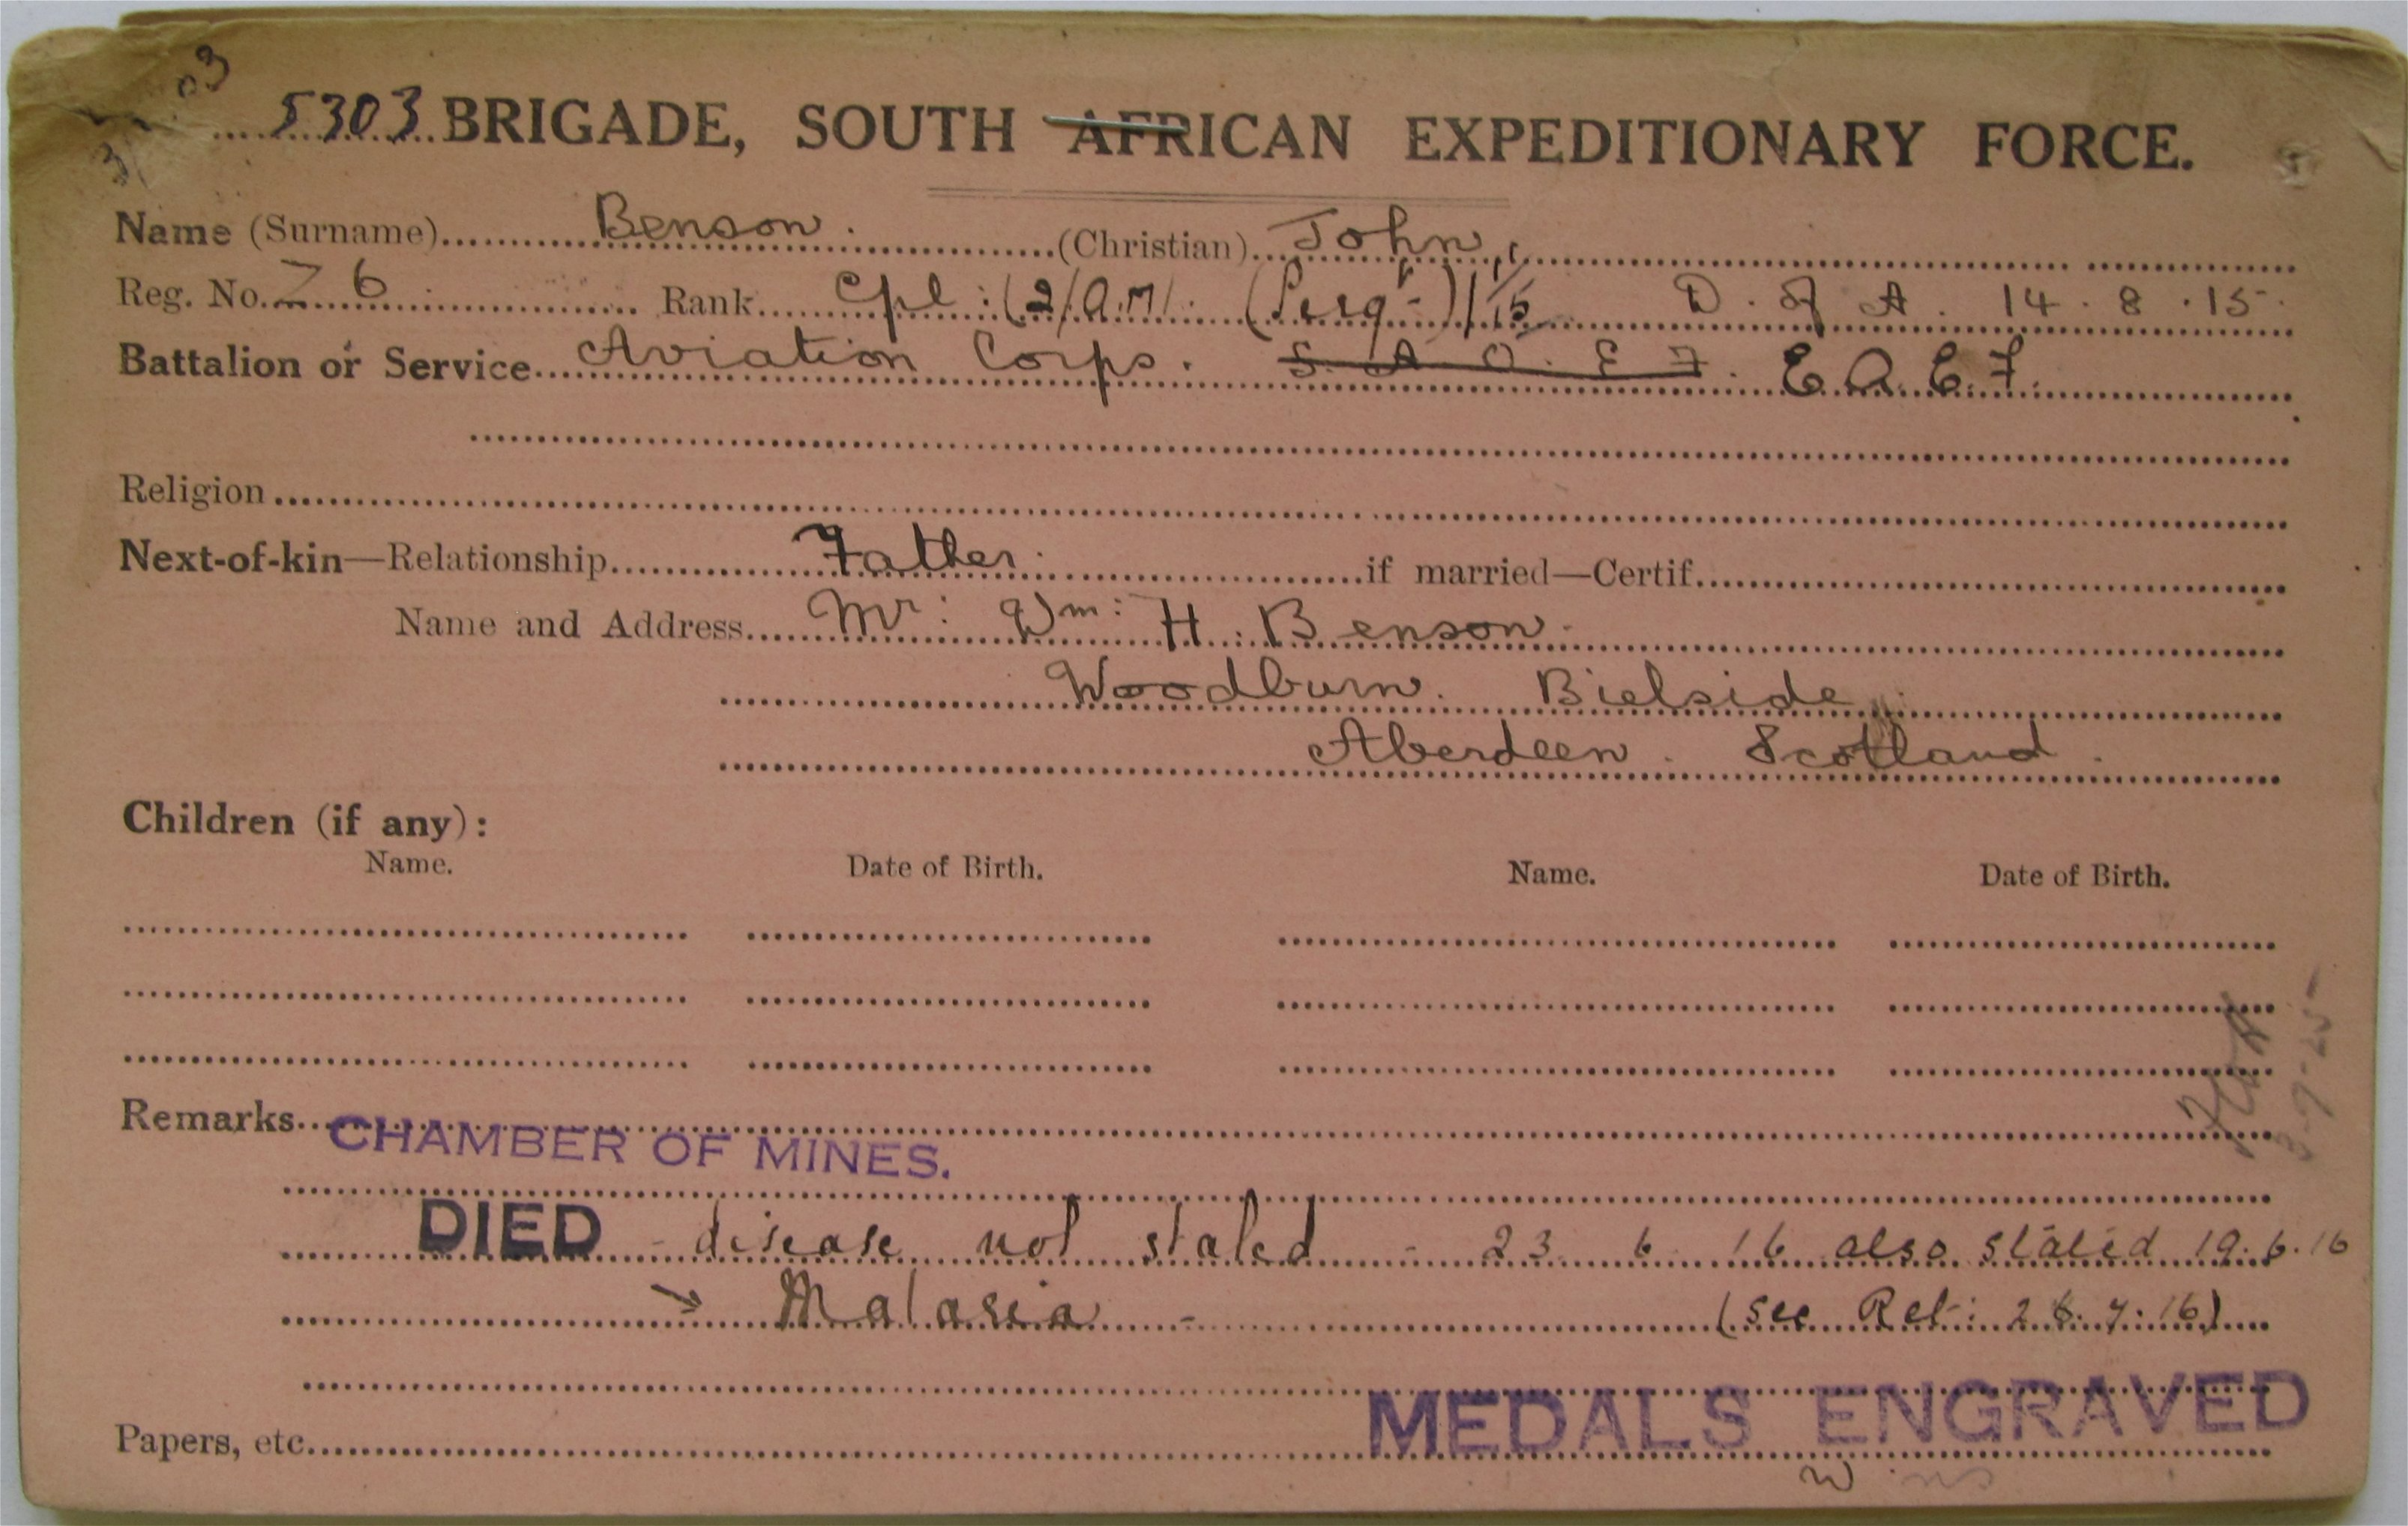 5303 BRIGADE, SOUTH AFRICAN EXPEDITIONARY FORCE.
Name (Surname) Benson. (Christian) John
Reg. No. 76 Rank Cpl: (2/A.M). D. of A. 14.8.15.
Battalion or Service Aviation Corps. S. A. O. E. F. E.A.E.F.
Religion
Next-of-kin—Relationship Father. if married—Certif.
Name and Address Mr: Wm: H. Benson.
Woodburn. Bielside.
Aberdeen. Scotland.
Children (if any):
Name. Date of Birth. Name. Date of Birth.
Remarks
CHAMBER OF MINES.
DIED - disease not stated - 23 6 16 also stated 19.6.16
→ Malaria - (see Ret: 26.7.16)
MEDALS ENGRAVED
Papers, etc.